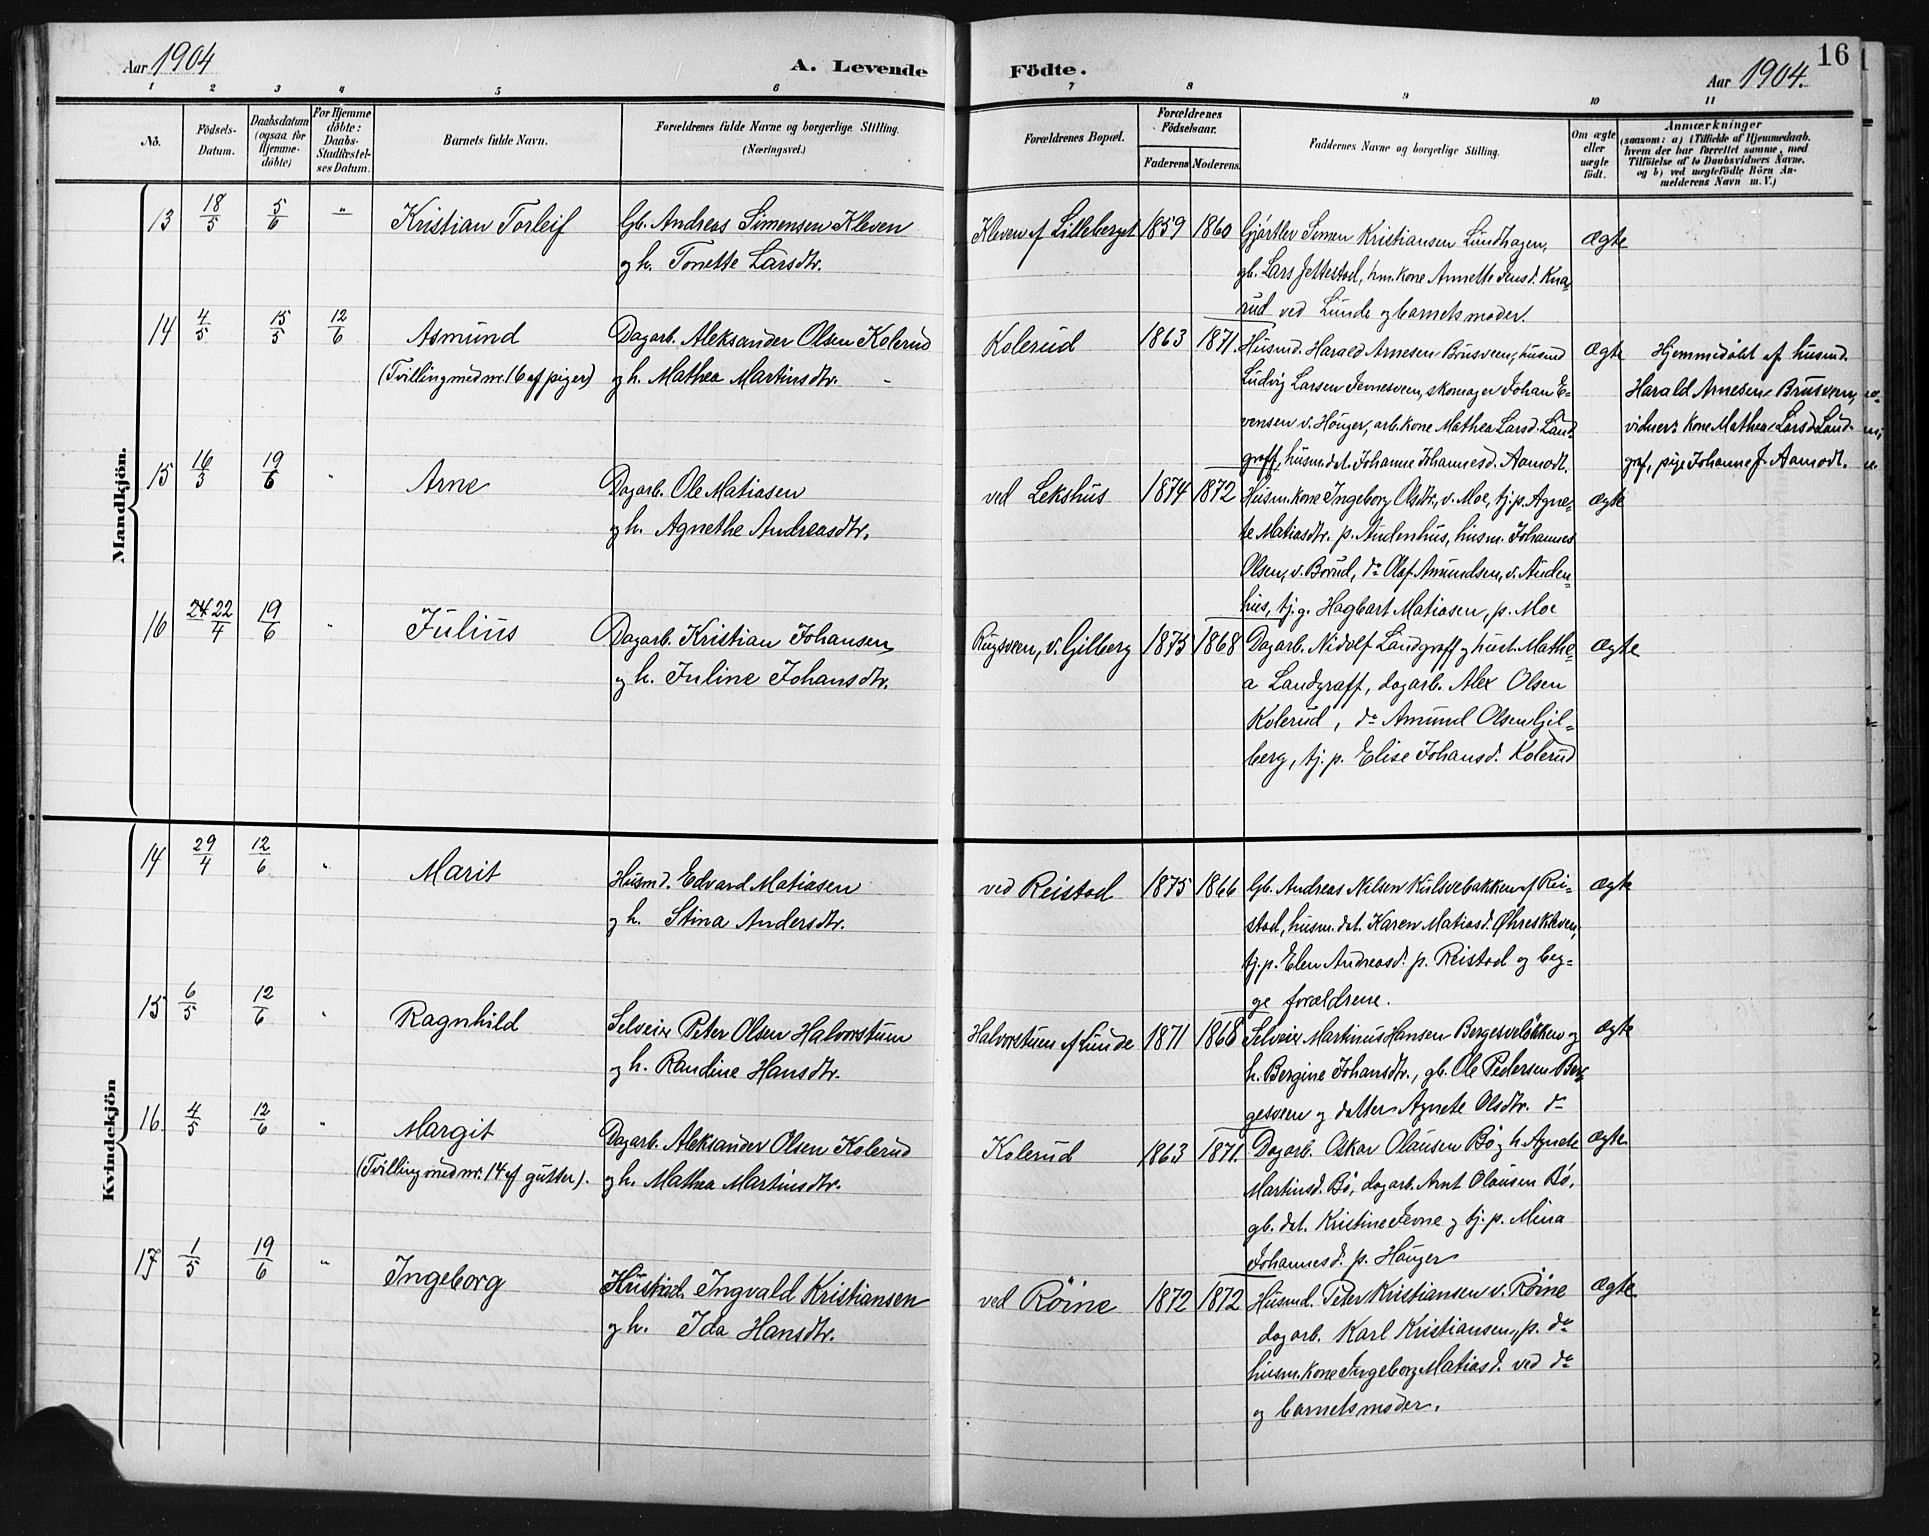 Aar 1904
A. Levende Födte.
16
Aar 1904.
1 2 3 4 5 6 7 8 9 10 11
No.
Födsels-Datum.
Daabsdatum (ogsaa for Hjemme-döbte)
For Hjemme döbte: Daabs-Stadfæstel-ses Datum.
Barnets fulde Navn.
Forældrenes fulde Navne og borgerlige Stilling. (Næringsvei.)
Forældrenes Bopæl.
Forældrenes Födselsaar.
Faderens Moderens.
Faddernes Navne og borgerlige Stilling.
Om ægte eller uægte födt.
Anmærkninger
(saasom: a) i Tilfælde af Hjemmedaab, hvem der har forrettet samme, med Tilföielse af to Daabsvidners Navne, og b) ved uægtefödte Börn An-melderens Navn m. V.)
Mandkjön.
13 18/5 5/6 " Kristian Torleif
Gb. Andreas Simensen Kleven
og h. Tonette Larsdtr.
Kleven af Lilleberget 1859 1860
Gjørtler Simen Kristiansen Lundhagen,
gb. Lars Jettestad, hm. kone Annette Jensd. Kna-
rud ved Lunde og barnets moder.
ægte
14 4/5 15/5 12/6 Asmund
(Tvilling med nr. 16 af piger)
Dagarb. Aleksander Olsen Kolerud
og h. Mathea Martinsdtr.
Kolerud 1863 1871.
Husmd. Harald Arnesen Brusveen, husmd
Ludvig Larsen Jevnesveen, skomager Johan E-
vensen v. Houger, arb. kone Mathea Larsd. Land-
graff, husm. dat. Johanne Johannesd. Aamodt.
ægte
Hjemmedøbt af husmd.
Harald Arnesen Brusveen,
vidner: kone Mathea Larsd. Land-
graf, pige Johanne J. Aamodt.
15 16/3 19/6 " Arne
Dagarb. Ole Matiasen
og h. Agnethe Andreasdtr.
ved Lekshus 1874 1872
Husm. kone Ingeborg Olsdtr. v. Moe, tj. p. Agne-
te Matiasdtr. p. Audenhus, husm. Johannes
Olsen, v. Borud, do Olaf Amundsen, v. Auden-
hus, tj. g. Hagbart Matiasen, p. Moe
ægte
16 24 22/4 19/6 " Julius
Dagarb. Kristian Johansen
og h. Juline Johansdtr.
Rugsveen, v. Gilberg 1873 1868
Dagarb. Nidolf Landgraff og hust. Mathe-
a Landgraff, dagarb. Alex Olsen
Kolerud, do Amund Olsen Gil-
berg, tj. p. Elise Johansd. Kolerud
ægte
Kvindekjön
14 29/4 12/6 " Marit
Husmd. Edvard Matiasen
og h. Stina Andersdtr.
ved Reistad 1875 1866
Gb. Andreas Nilsen Kulsvebakken af Rei-
stad, husm. dat. Karen Matiasd. Øhreskleven,
tj. p. Elen Andreasd. p. Reistad og beg-
ge forældrene.
ægte
15 6/5 12/6 " Ragnhild
Selveier Peter Olsen Halvorstuen
og h. Randine Hansdtr.
Halvorstuen af Lunde 1871 1868
Selveier Martinus Hansen Bergesveløkken og
h. Bergine Johansdtr., gb. Ole Pedersen Ber-
gesveen og datter Agnete Olsdtr. do
ægte
16 4/5 12/6 " Margit
(Tvilling med nr. 14 af gutter).
Dagarb. Aleksander Olsen Kolerud
og h. Mathea Martinsdtr.
Kolerud 1863 1871.
Dagarb. Oskar Olausen Bø og h. Agnete
Martinsd. Bø, dagarb. Arnt Olausen Bø,
gb. dat. Kristine Jevne og tj. p. Mina
Johannesd. p. Houger
ægte
17 1/5 19/6 " Ingeborg
Husmd. Ingvald Kristiansen
og h. Ida Hansdtr.
ved Røine 1872 1872
Husmd. Peter Kristiansen v. Røine
dagarb. Karl Kristiansen, p. do
husm. kone Ingeborg Matiasd. ved do
og barnets moder.
ægte